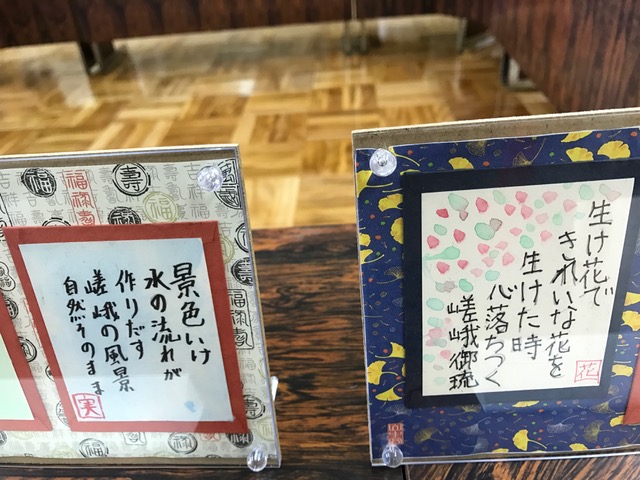 景色いけ
水の流れが
作りだす
嵯峨の風景
自然そのまま
実
生け花で
きれいな花を
生けた時
心落ちつく
嵯峨御琉
花
福禄寿
壽
福